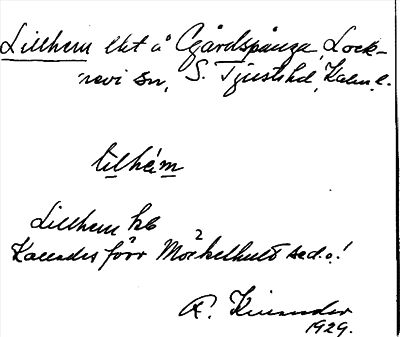 Lillhem lht å Gårdspånga, Lock-
nevi sn, S. Tjusts hd, Kalm. l.
lilhém
Lillhem hb
Kallades förr Mörkelhult sed.o.!
R. Kinander
1929.